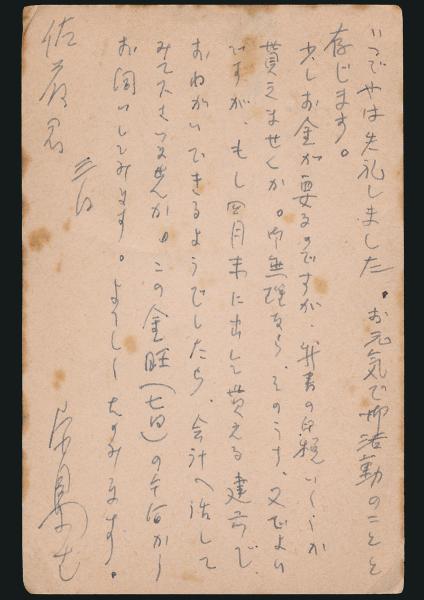 いつぞやは失礼しました。お元気で御活動のことと
存じます。
少しお金が要るのですが、新書の印税いくらか
貰えませんか。御無理なら、そのうち、又でよい
ですが、もし四月末に出して貰える建前で
おねがいできるようでしたら、会計へ話して
みて下さいませんか。この金旺(七日)の午后から
お伺いしてみます。よろしくたのみます。
三日
佐
君